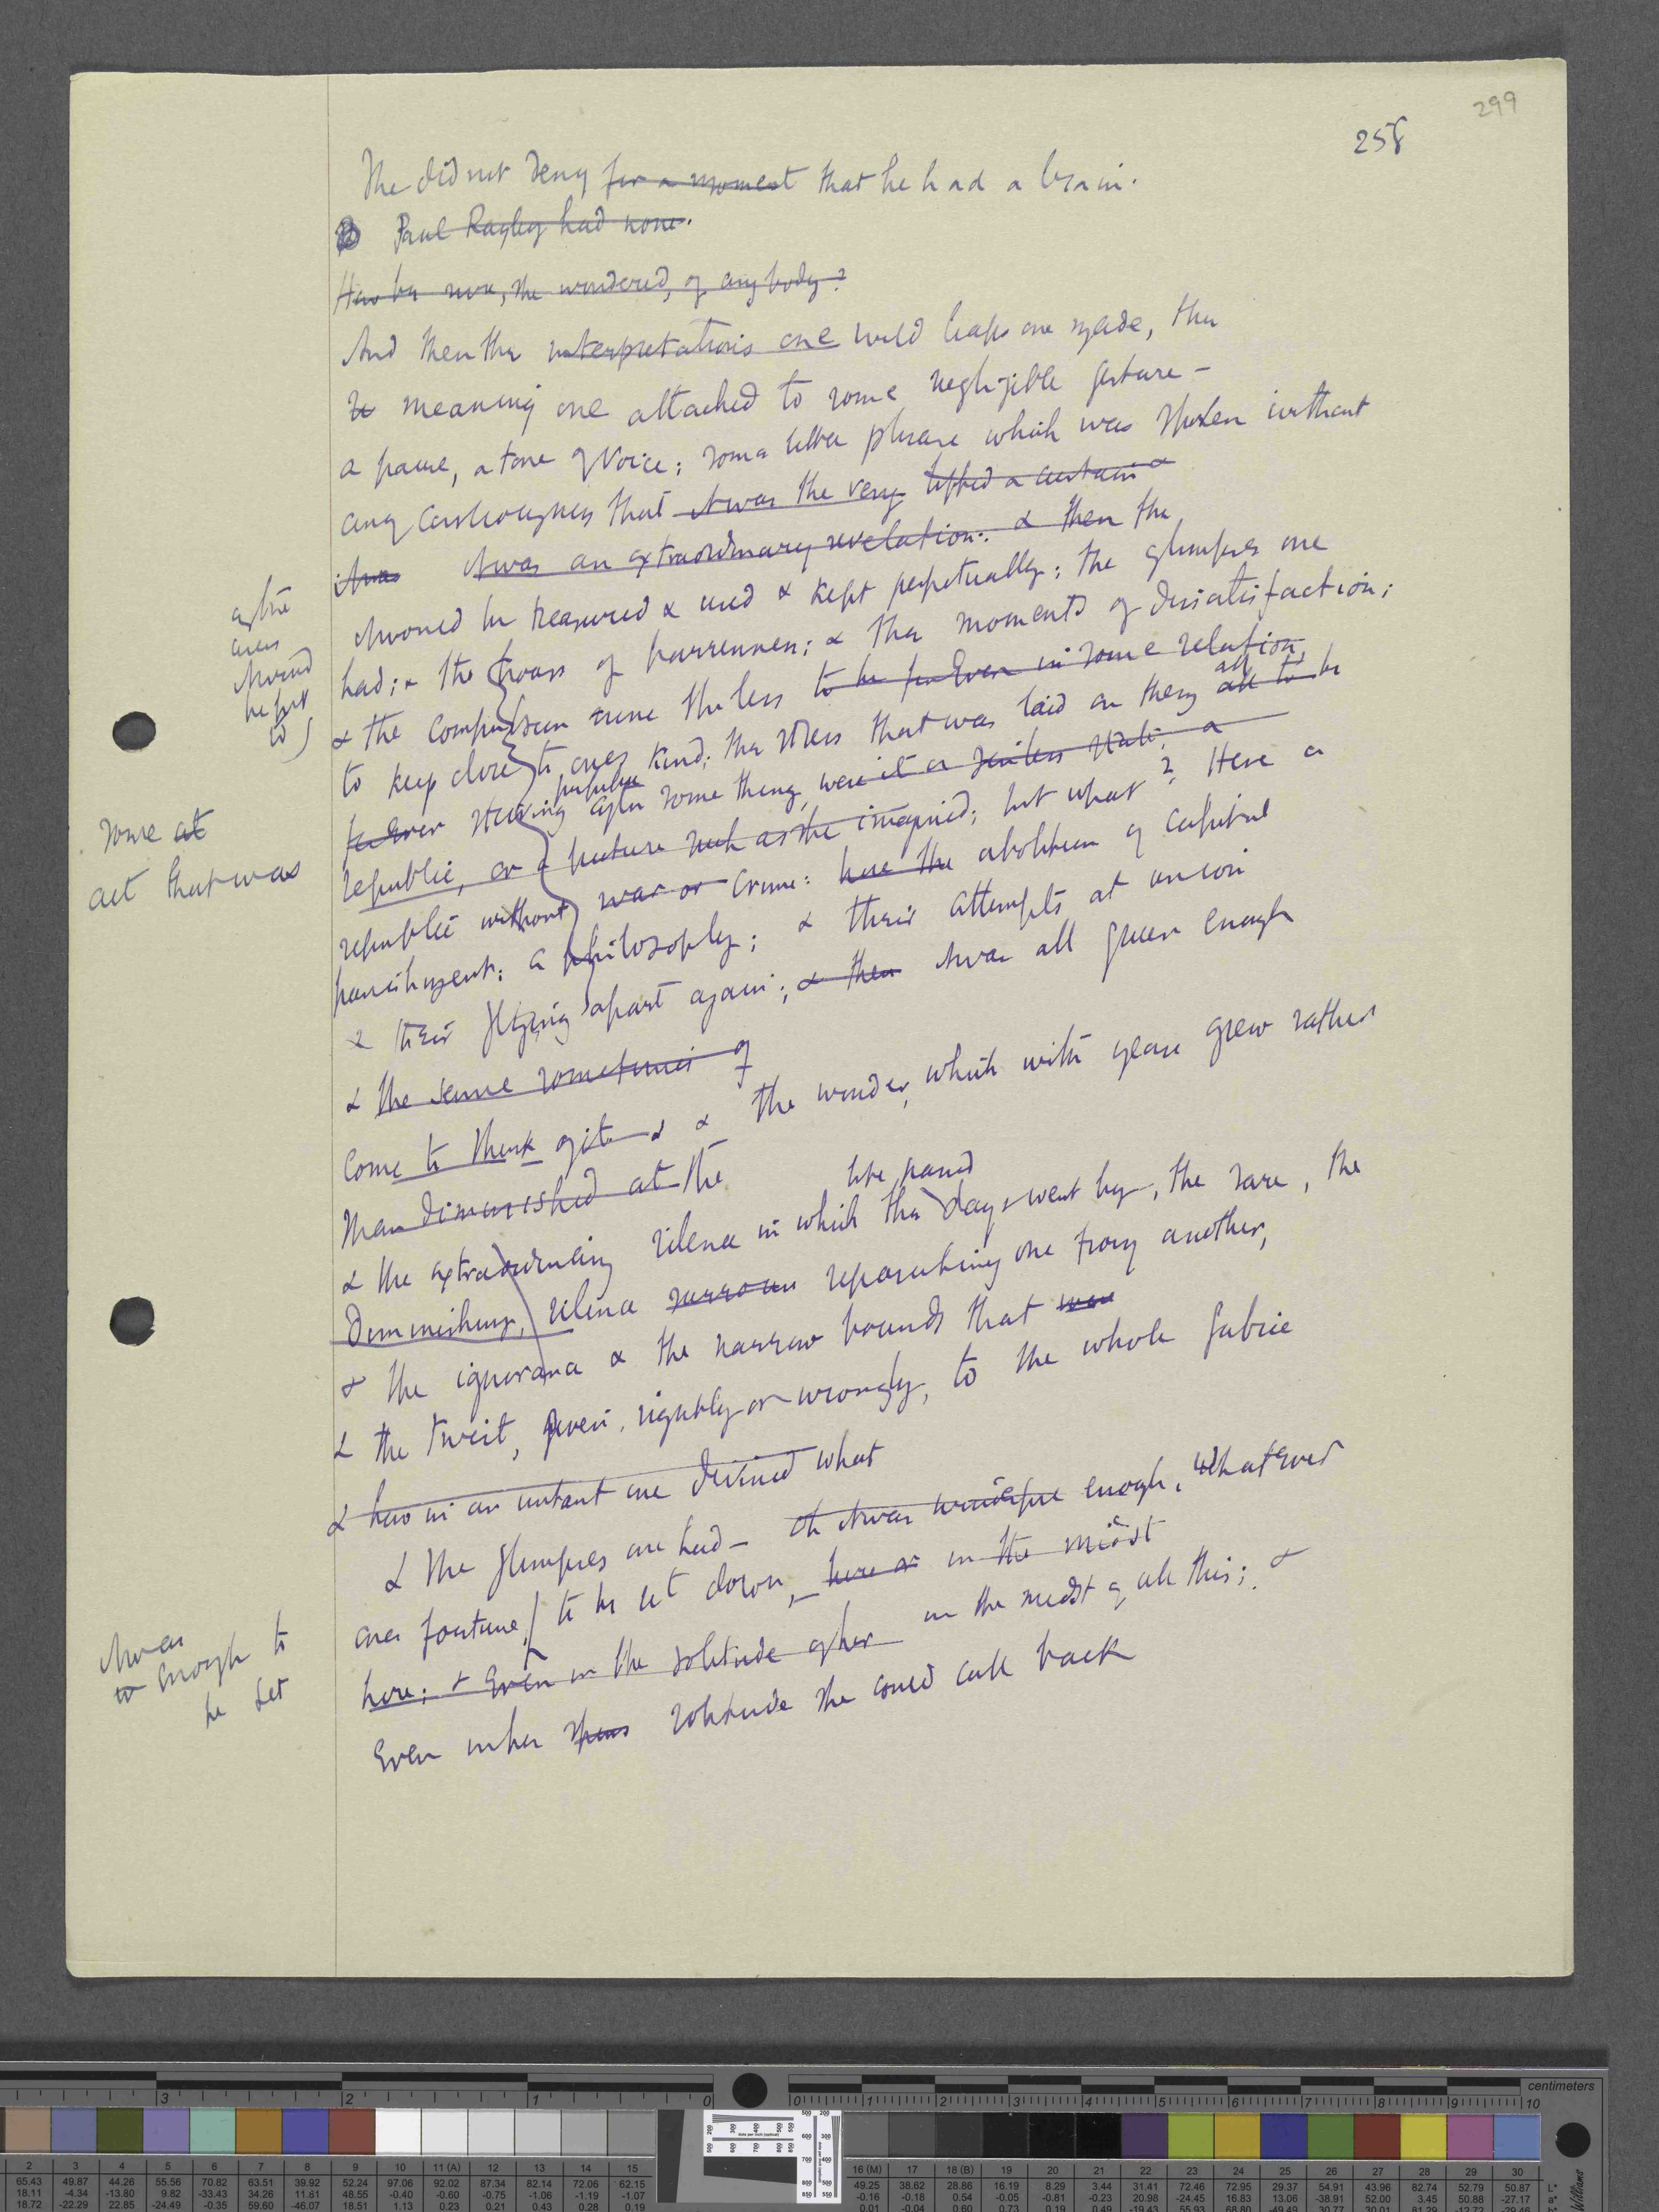 299
258
She did not deny for a moment that he had a brain.
Paul Rayley had none.
How br one, she wondered, of anybody?
And then the interpretations one wild leaps one made, the
meaning one attached to some negligible gesture -
a pause, a tone of voice; some little phrase which was spoken without
any consciousness that it was the very lifted a curtain &
it was it was an extraordinary revelation: & then the
should be treasured & used & kept perpetually: the glimpses one
had; & the hours of barrenness; & the moments of dissatisfaction;
& the compulsion none the less to be for Ever in some relation,
to keep close to ones kind; the stress that was laid on them all all to be
for Ever striving perpetual after some thing, were it a state, a
republic, or a picture such as she imagined; but what? Here a
republic without war or crime: here the abolition of capital
punishment: a philosophy; & their attempts at union
& their flying apart again; & then it was all queer enough
& the sense sometimes of
come to think of it & & the wonder, which with years grew rather
than diminished at the
life passed
& the extraordinary silence in which the days went by, the rare, the
diminishing, silence narrow separating one from another,
& the ignorance & the narrow bounds that were
& the twist, given, rightly or wrongly, to the whole fabric
& how in an instant one divined what
& the glimpses one had - oh it was enough, whatever
ones fortune, to be set down, here or in the midst
here; & Even in the solitude of her in the midst of all this; &
Even in her solitude she could call back
after
ones
should
be put
to)
some at
act that was
it was
enough to
be set
centimeters